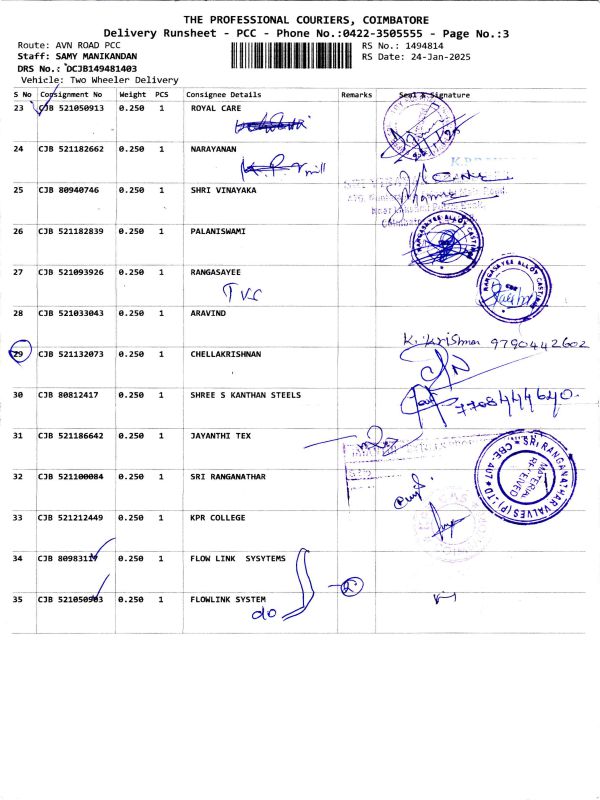 THE PROFESSIONAL COURIERS, COIMBATORE
Delivery Runsheet - PCC - Phone No.:0422-3505555 - Page No.:3
Route: AVN ROAD PCC RS No.: 1494814
Staff: SAMY MANIKANDAN RS Date: 24-Jan-2025
DRS No.: DCJB149481403
Vehicle: Two Wheeler Delivery
S No Consignment No Weight PCS Consignee Details Remarks Seal & Signature
23 CJB 521050913 0.250 1 ROYAL CARE
24 CJB 521182662 0.250 1 NARAYANAN
K.P.R mill
25 CJB 80940746 0.250 1 SHRI VINAYAKA
26 CJB 521182839 0.250 1 PALANISWAMI
RANGASAYEE ALLOY CASTINGS
27 CJB 521093926 0.250 1 RANGASAYEE
TVS
RANGASAYEE ALLOY CASTINGS
CBE
28 CJB 521033043 0.250 1 ARAVIND
K. Krishnan 9790442602
29 CJB 521132073 0.250 1 CHELLAKRISHNAN
30 CJB 80812417 0.250 1 SHREE S KANTHAN STEELS
7708444640
31 CJB 521186642 0.250 1 JAYANTHI TEX
SRI RANGANATHAR VALVES (P) LTD
CBE-407
MATERIAL RECEIVED
32 CJB 521100084 0.250 1 SRI RANGANATHAR
33 CJB 521212449 0.250 1 KPR COLLEGE
34 CJB 80983117 0.250 1 FLOW LINK SYSYTEMS
2
35 CJB 521050903 0.250 1 FLOWLINK SYSTEM
do